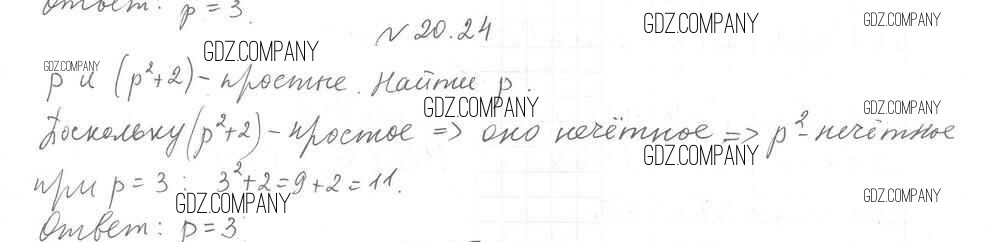 Ответ: p = 3.
№ 20.24
p и (p²+2) - простые. Найти p.
Поскольку (p²+2) - простое => оно нечётное => p² - нечётное
при p = 3 : 3²+2 = 9+2 = 11.
Ответ: p = 3
GDZ.COMPANY
GDZ.COMPANY
GDZ.COMPANY
GDZ.COMPANY
GDZ.COMPANY
GDZ.COMPANY
GDZ.COMPANY
GDZ.COMPANY
GDZ.COMPANY